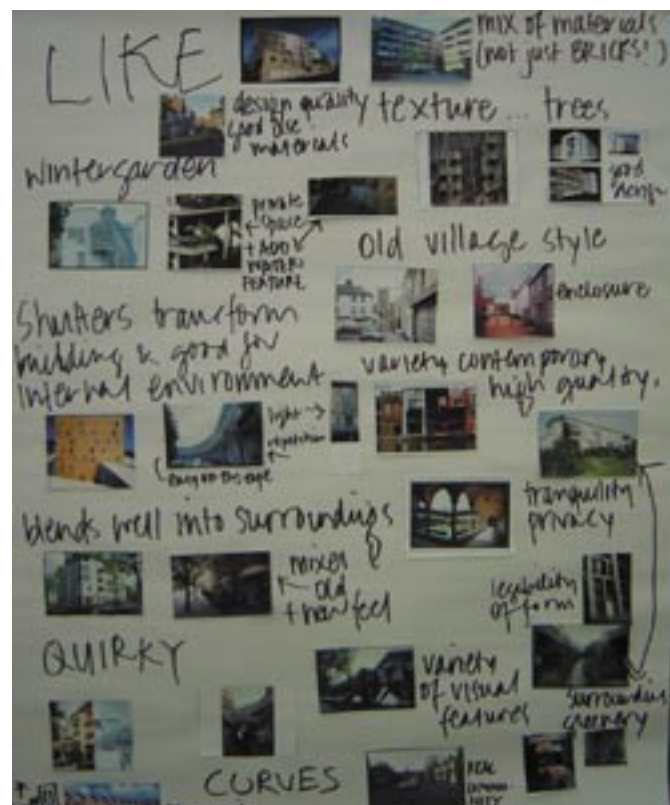 LIKE
mix of materials
(not just BRICKS!)
design quality
good use
materials
texture... trees
good
design
wintergarden
private
space
+ ADD
WATER
FEATURE
Old village style
enclosure
Shutters transform
building & good for
internal environment
variety, contemporary,
high quality.
light
repetition
easy on the eye
tranquility
privacy
blends well into surroundings
mixes
old
+ new feel
legibility
of form
QUIRKY
variety
of visual
features
surrounding
greenery
CURVES
REAL